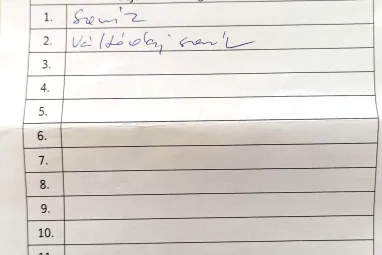 1. Szerviz
2. Váltóolaj szerviz
3.
4.
5.
6.
7.
8.
9.
10.